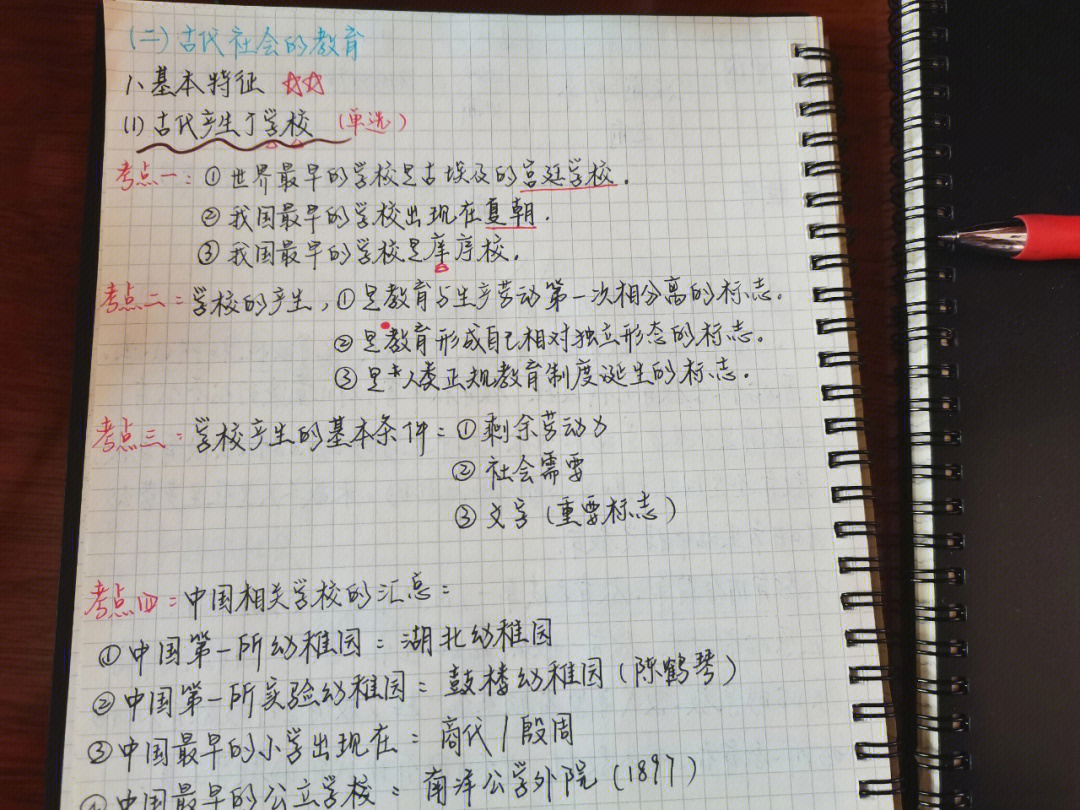 (二)古代社会的教育
1、基本特征 ☆☆
(1)古代产生了学校 (单选)
考点一：①世界最早的学校是古埃及的宫廷学校.
②我国最早的学校出现在夏朝.
③我国最早的学校是庠序校.
考点二：学校的产生,①是教育与生产劳动第一次相分离的标志。
②是教育形成自己相对独立形态的标志。
③是*人类正规教育制度诞生的标志.
考点三：学校产生的基本条件：①剩余劳动力
②社会需要
③文字(重要标志)
考点四：中国相关学校的汇总：
①中国第一所幼稚园：湖北幼稚园
②中国第一所实验幼稚园：鼓楼幼稚园(陈鹤琴)
③中国最早的小学出现在：商代/殷周
④中国最早的公立学校：南洋公学外院(1897)